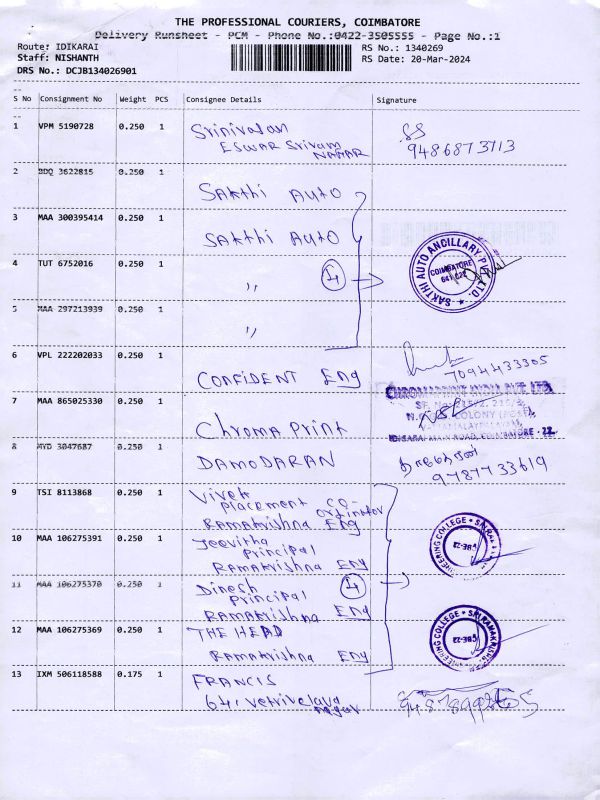 THE PROFESSIONAL COURIERS, COIMBATORE
Delivery Runsheet - PCM - Phone No.:0422-3505555 - Page No.:1
Route: IDIKARAI
RS No.: 1340269
Staff: NISHANTH
RS Date: 20-Mar-2024
DRS No.: DCJB134026901
S No Consignment No Weight PCS Consignee Details Signature
1 VPM 5190728 0.250 1 Srinivasan
ESWAR Srivam NAGAR
SS
9486873113
2 BDQ 3622815 0.250 1
SAKthi AUTO
3 MAA 300395414 0.250 1
SAKthi AUTO
4 TUT 6752016 0.250 1 ,,
4
SAKTHI AUTO ANCILLARY PVT. LTD.
COIMBATORE
5 MAA 297213939 0.250 1 ,,
6 VPL 222202033 0.250 1
CONFIDENT Eng
7094433305
7 MAA 865025330 0.250 1
Chroma Print
CHROMAPRINT INDIA PVT. LTD.
COLONY (POST),
IDIGARAI MAIN ROAD, COIMBATORE - 22.
8 MYD 3047687 0.250 1
DAMODARAN
தாமோதரன்
9787733619
9 TSI 8113868 0.250 1 Vivek
Placement CO-
Ordinator
Ramakrishna Eng
10 MAA 106275391 0.250 1 Jeevitha
Principal
RAMAKrishna Eng
11 MAA 106275370 0.250 1 Dinesh
Principal
4
RAMAKrishna Eng
12 MAA 106275369 0.250 1 THE HEAD
RAMAKrishna Eng
13 IXM 506118588 0.175 1 FRANCIS
64, vetrivelava nagar